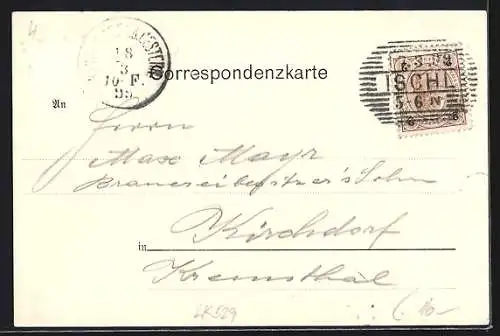 18
3
10-F.
99
Correspondenzkarte
ISCHL
5-6N
An
Herrn
Max Mayr
Brauereibesitzer's Sohn
Kirchdorf
in
Kremsthal
LK529
10-